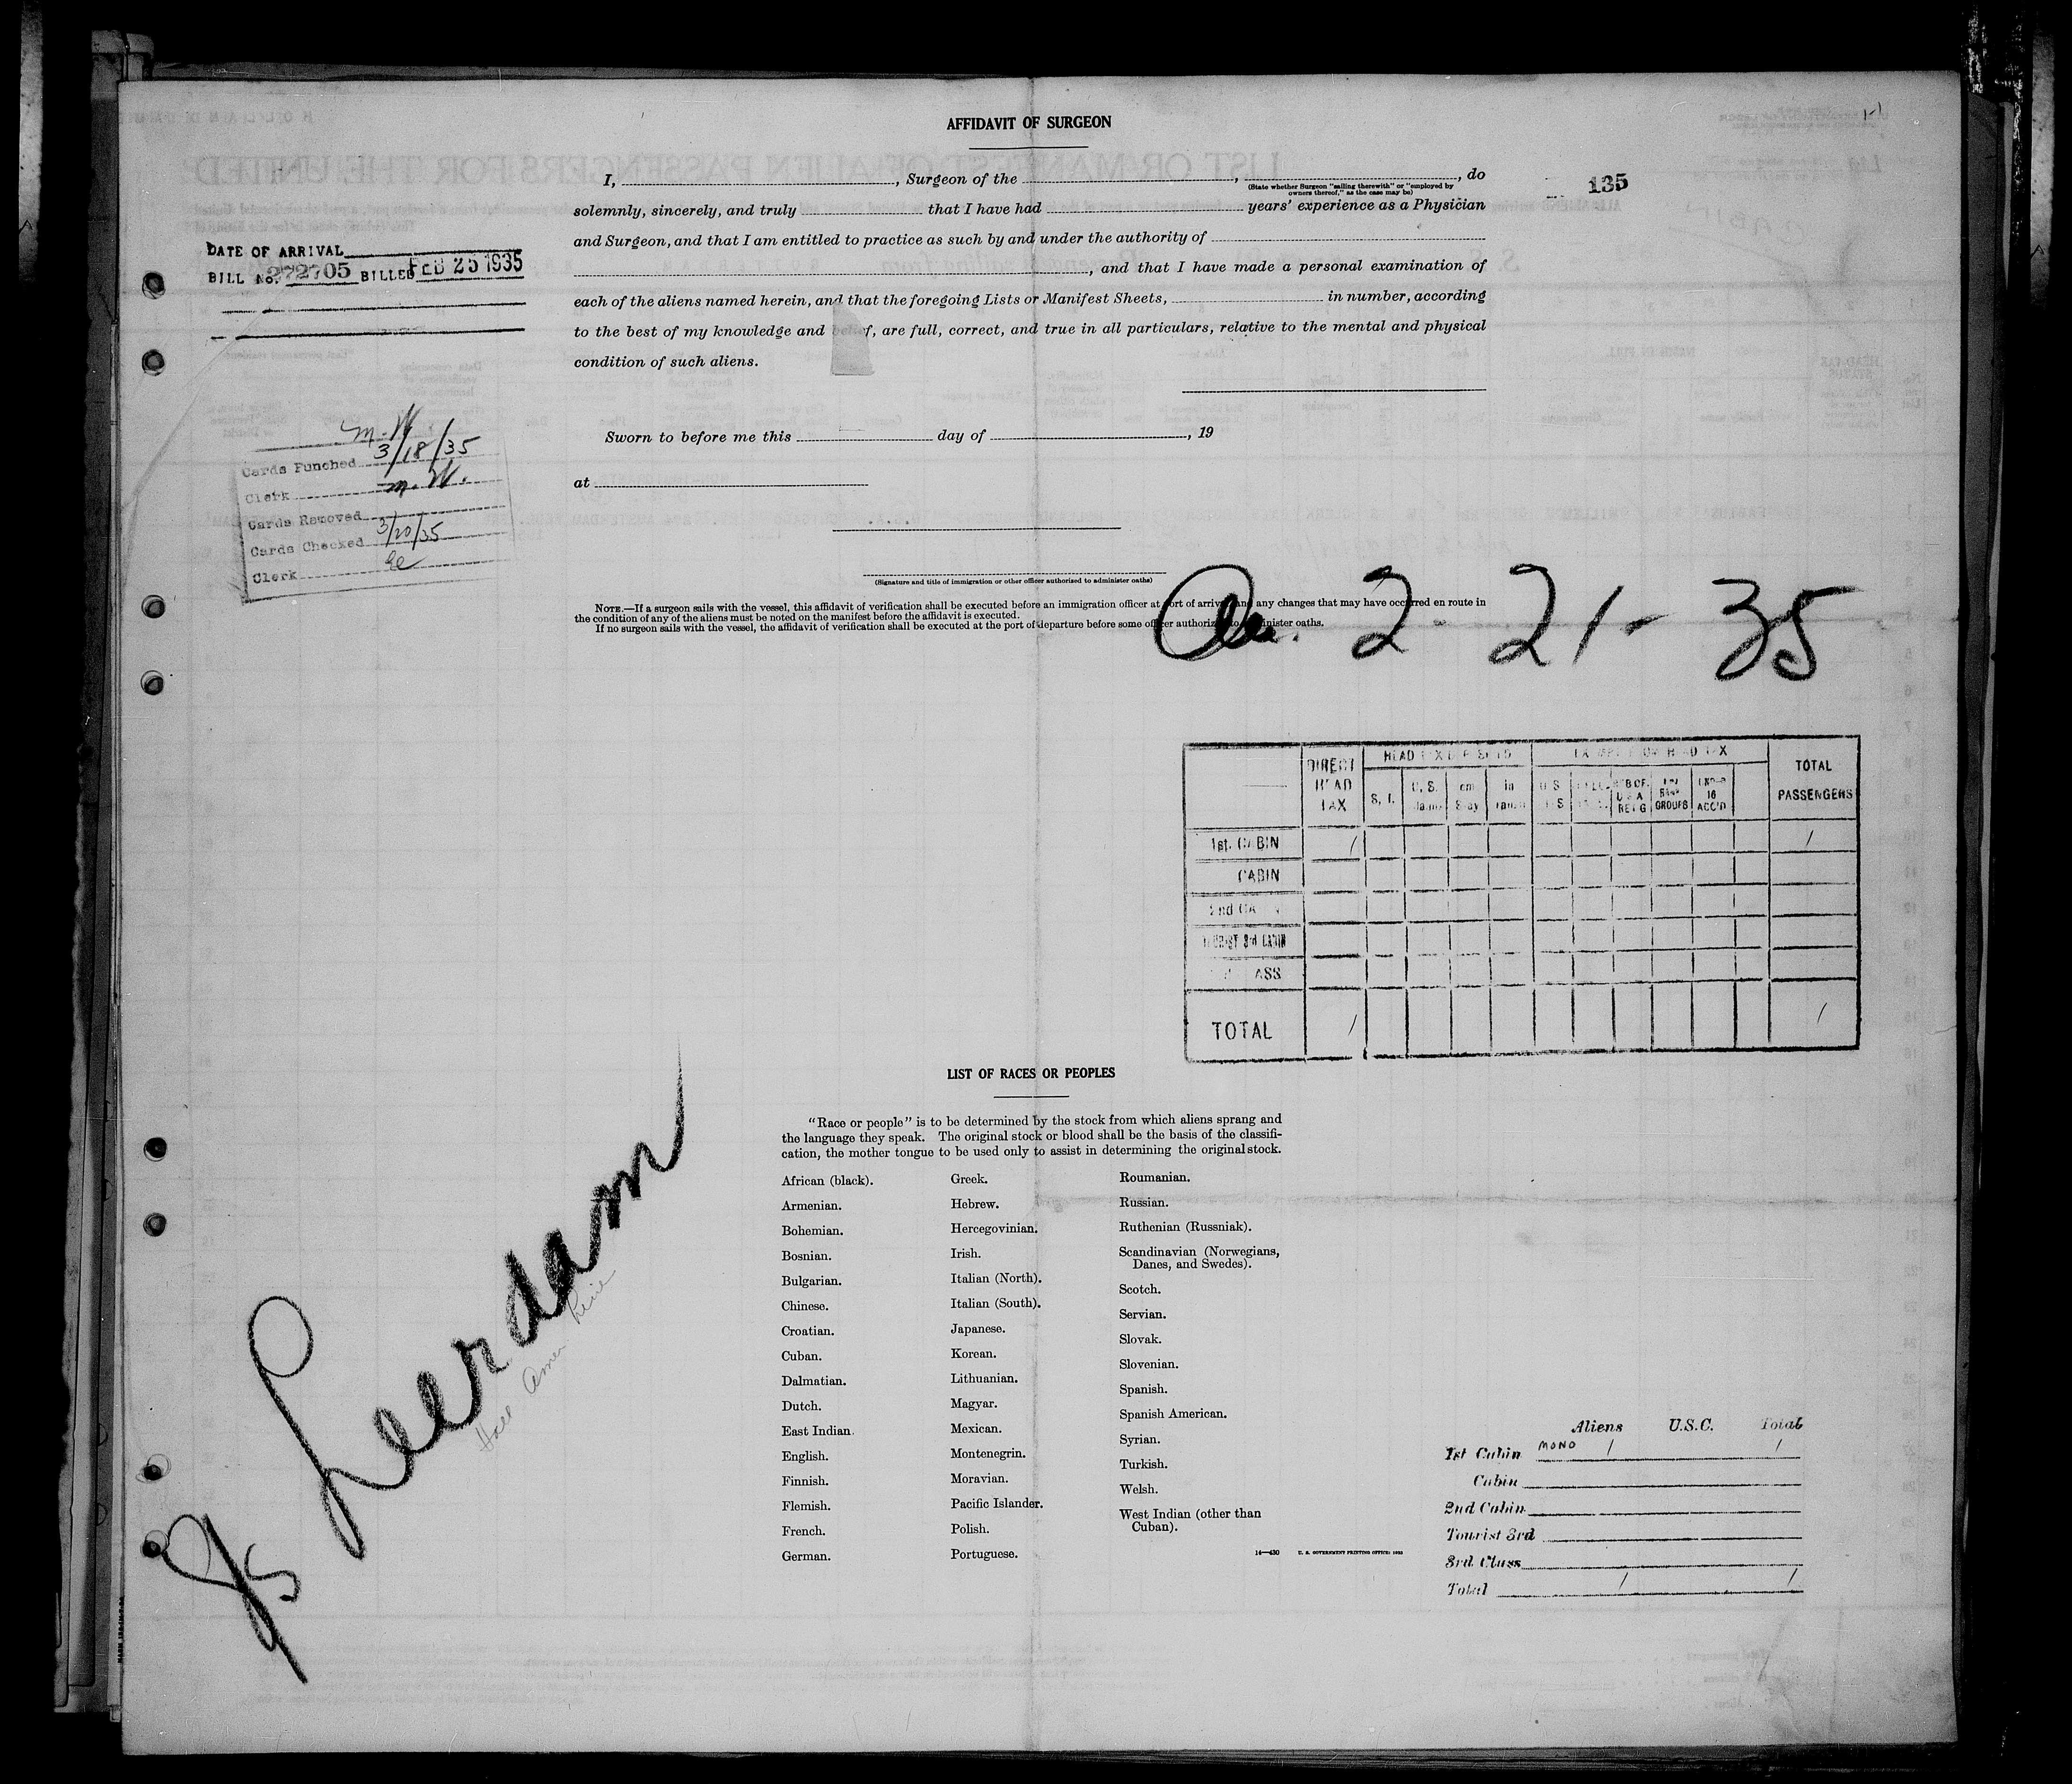 AFFIDAVIT OF SURGEON
I, , Surgeon of the , , do
(State whether Surgeon "sailing therewith" or "employed by
owners thereof," as the case may be)
135
solemnly, sincerely, and truly that I have had years' experience as a Physician
and Surgeon, and that I am entitled to practice as such by and under the authority of
, and that I have made a personal examination of
each of the aliens named herein, and that the foregoing Lists or Manifest Sheets, in number, according
to the best of my knowledge and belief, are full, correct, and true in all particulars, relative to the mental and physical
condition of such aliens.
DATE OF ARRIVAL
BILL No. 272705 BILLED FEB 25 1935
Sworn to before me this day of , 19
at
M. W.
Cards Punched 3/18/35
Clerk m. W.
Cards Removed
Cards Checked 3/20/35
Clerk
(Signature and title of immigration or other officer authorized to administer oaths)
NOTE.—If a surgeon sails with the vessel, this affidavit of verification shall be executed before an immigration officer at port of arrival and any changes that may have occurred en route in
the condition of any of the aliens must be noted on the manifest before the affidavit is executed.
If no surgeon sails with the vessel, the affidavit of verification shall be executed at the port of departure before some officer authorized to administer oaths.
2-21-35
DIRECT HEAD TAX
TOTAL PASSENGERS
S. I. U. S.
GROUPS
16 ACC'D
1st. CABIN 1 1
CABIN
2nd
TOTAL 1 1
LIST OF RACES OR PEOPLES
"Race or people" is to be determined by the stock from which aliens sprang and
the language they speak. The original stock or blood shall be the basis of the classifi-
cation, the mother tongue to be used only to assist in determining the original stock.
African (black).
Armenian.
Bohemian.
Bosnian.
Bulgarian.
Chinese.
Croatian.
Cuban.
Dalmatian.
Dutch.
East Indian.
English.
Finnish.
Flemish.
French.
German.
Greek.
Hebrew.
Hercegovinian.
Irish.
Italian (North).
Italian (South).
Japanese.
Korean.
Lithuanian.
Magyar.
Mexican.
Montenegrin.
Moravian.
Pacific Islander.
Polish.
Portuguese.
Roumanian.
Russian.
Ruthenian (Russniak).
Scandinavian (Norwegians,
Danes, and Swedes).
Scotch.
Servian.
Slovak.
Slovenian.
Spanish.
Spanish American.
Syrian.
Turkish.
Welsh.
West Indian (other than
Cuban).
14—430 U. S. GOVERNMENT PRINTING OFFICE:
SS Leerdam
Holl Amer Line
Aliens U.S.C. Total
1st Cabin MONO 1 1
Cabin
2nd Cabin
Tourist 3rd
3rd Class
Total 1 1